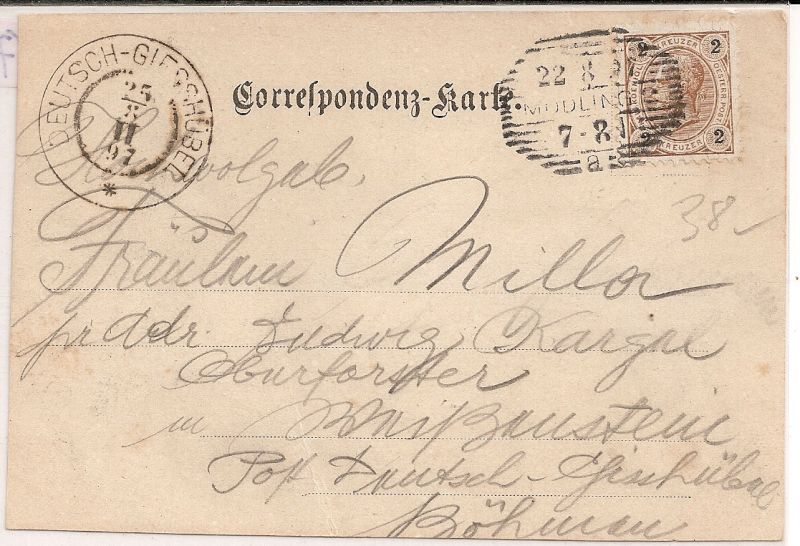 DEUTSCH-GIESSHÜBEL
25
8
II
97
*
Correspondenz-Karte.
22 8
MÖDLING
7-8
a
2 KREUZER 2
2 KREUZER 2
38-
Fräulein Milla
pr Adr. Ludwig
Oberförster
in Weißenstein
Post Deutsch-Gieshübel
Böhmen